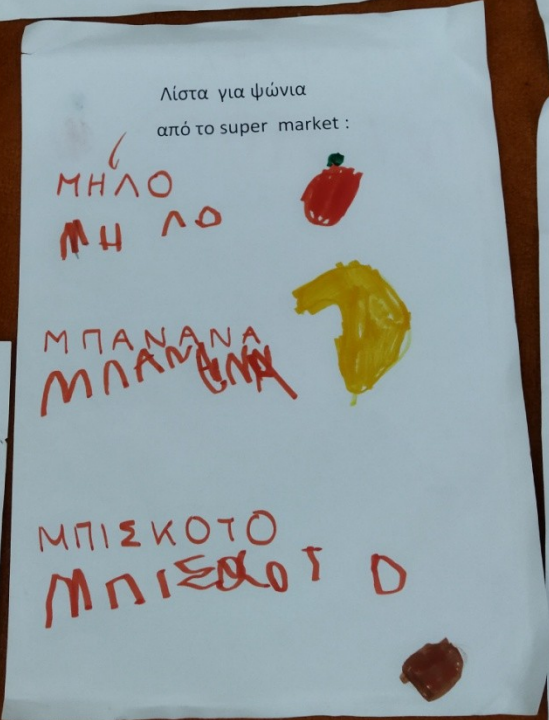 Λίστα για ψώνια
από το super market :
ΜΗΛΟ
ΜΗ ΛΟ
ΜΠΑΝΑΝΑ
ΜΠΑΝΑΝΑ
ΜΠΙΣΚΟΤΟ
ΜΠΙΣΚΟΤ Ο